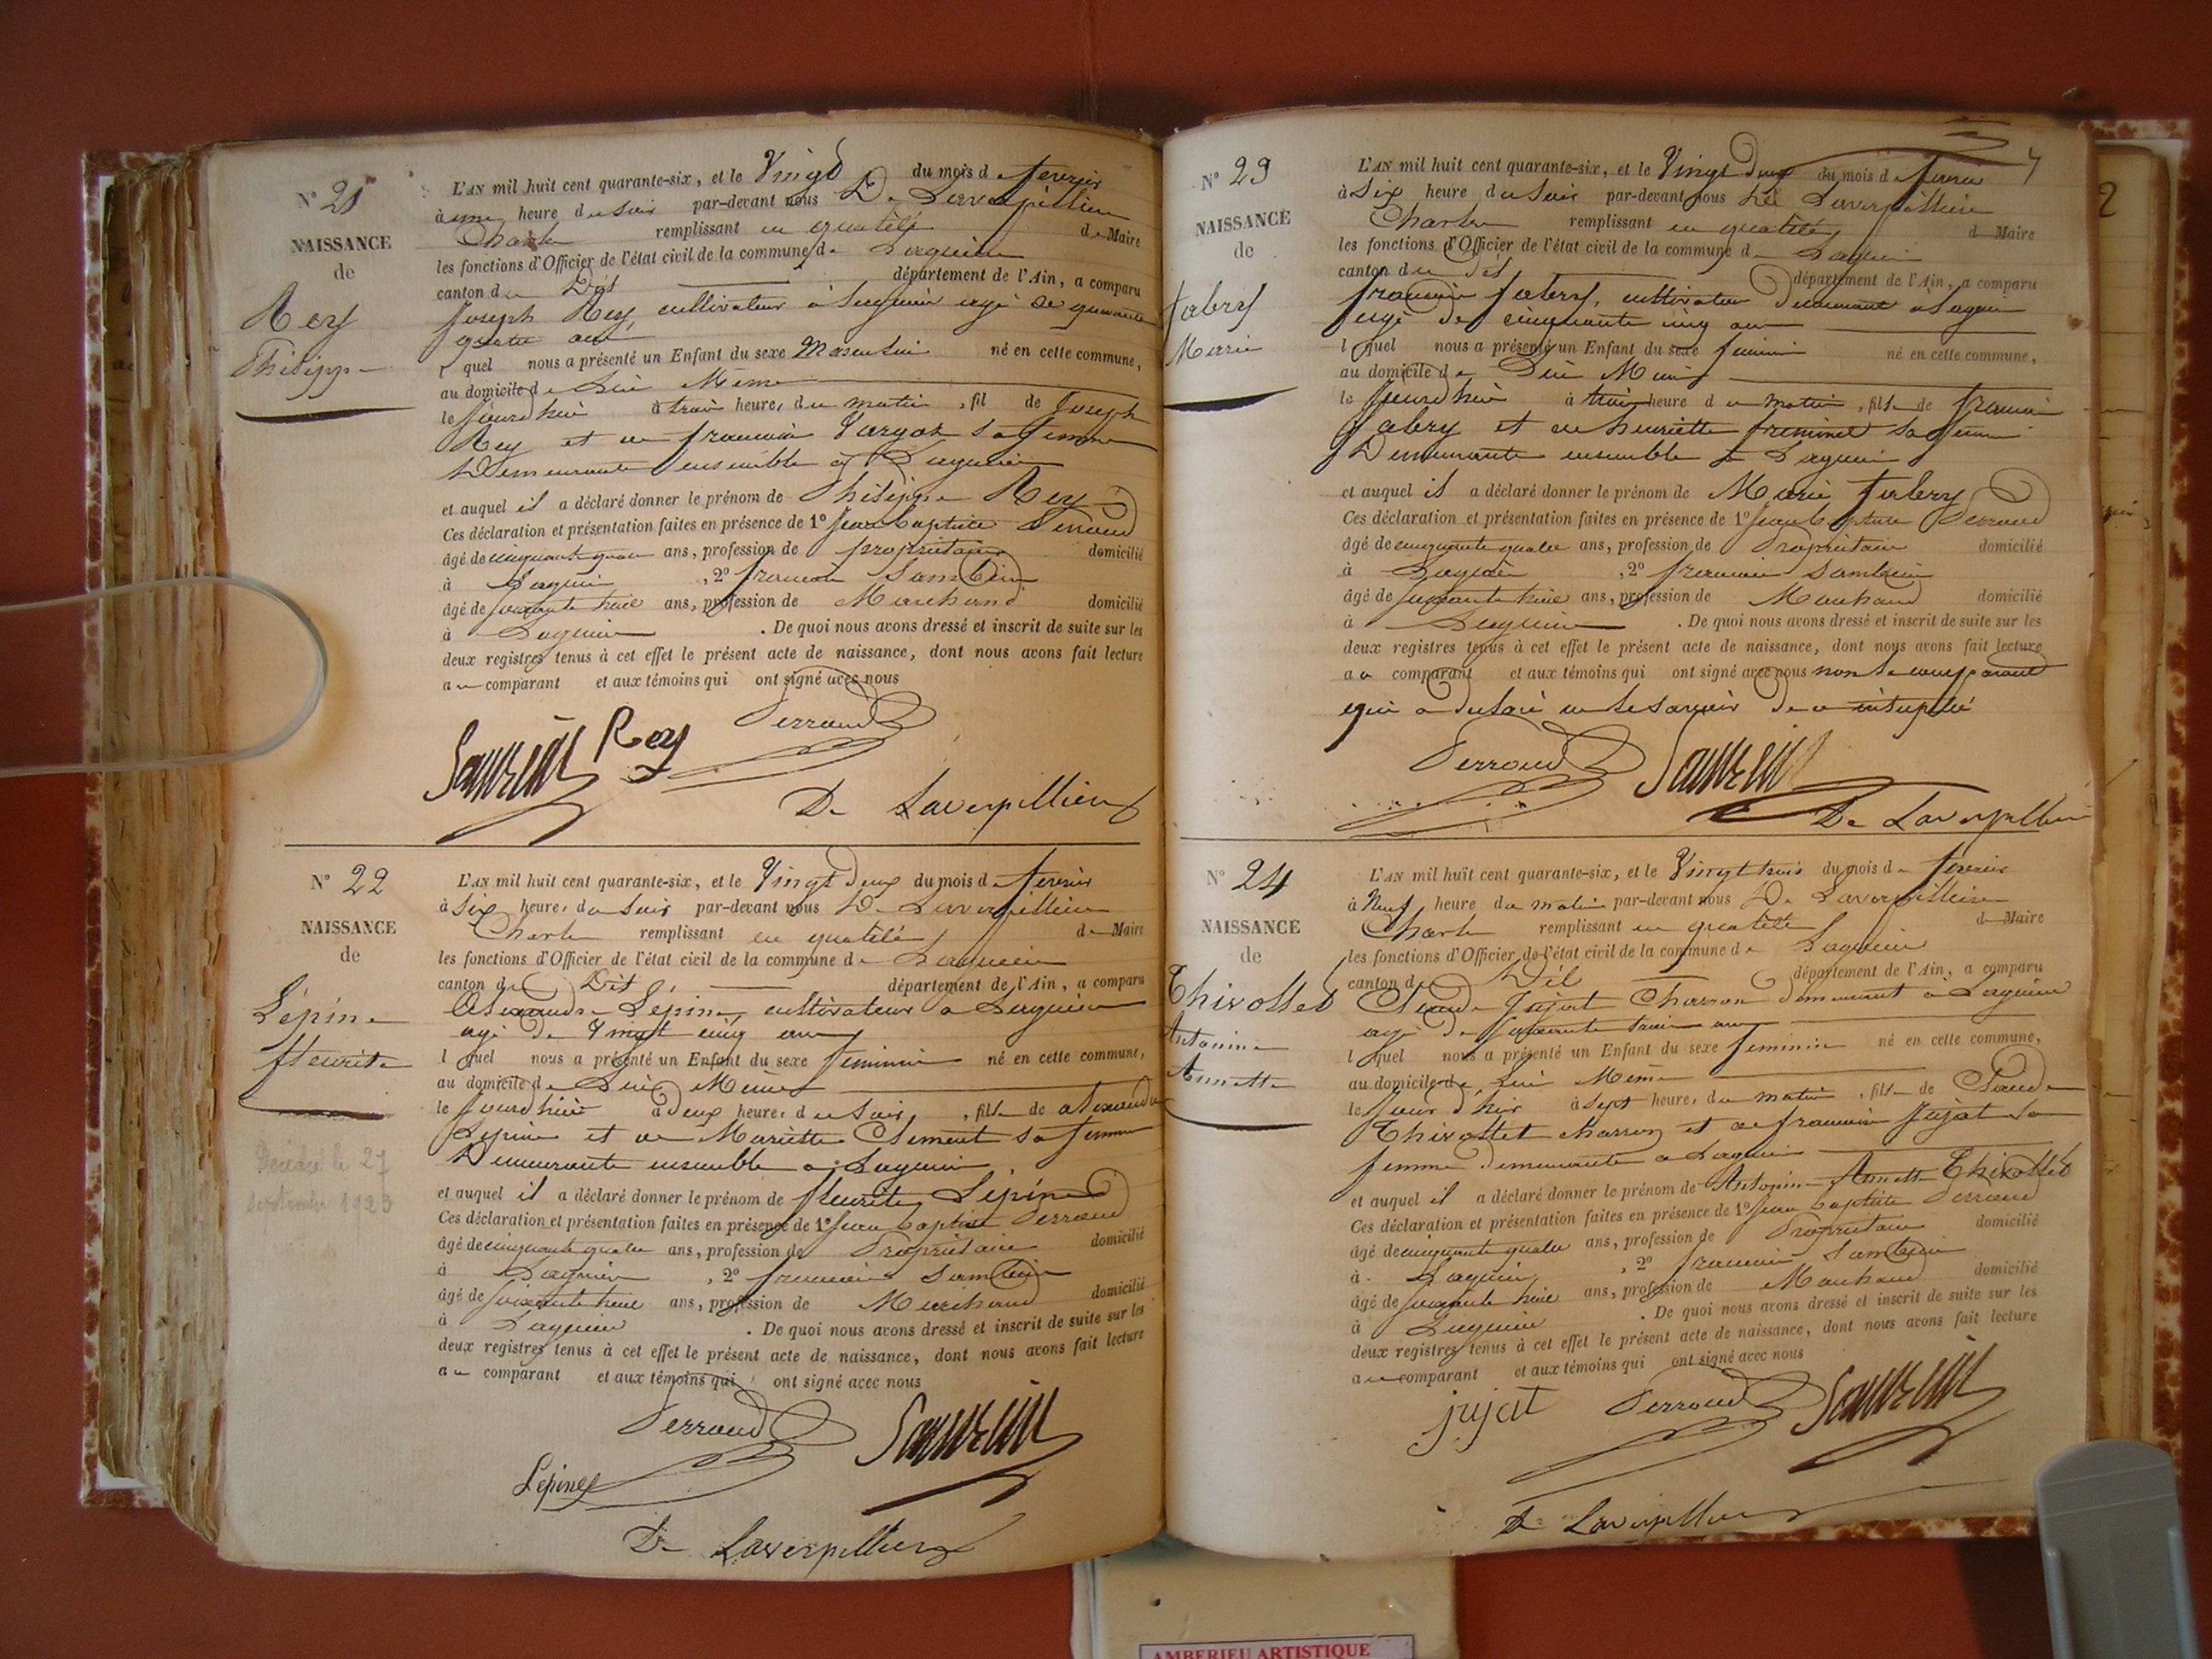 N° 21
NAISSANCE
de
Rey
Philippe
L'AN mil huit cent quarante-six, et le Vingt du mois de fevrier
à une heure du soir par-devant nous De Laverpilliere
Charle remplissant en qualité de Maire
les fonctions d'Officier de l'état civil de la commune de Lagnieu
canton du Dit département de l'Ain, a comparu
Joseph Rey, cultivateur à Lagnieu agé de quarante
quatre ans
lequel nous a présenté un Enfant du sexe Masculin né en cette commune,
au domicile de Lui Même
le jourdhui à trois heure, du matin, fil de Joseph
Rey et de francoise sa femme
Demeurante ensemble a Lagnieu
et auquel il a déclaré donner le prénom de Philippe Rey
Ces déclaration et présentation faites en présence de 1° Jean Baptiste Perroud
âgé de cinquante quatre ans, profession de propriétaire domicilié
à Lagnieu, 2° francois Sambuin
âgé de soixante huit ans, profession de Marchand domicilié
à Lagnieu. De quoi nous avons dressé et inscrit de suite sur les
deux registres tenus à cet effet le présent acte de naissance, dont nous avons fait lecture
au comparant et aux témoins qui ont signé avec nous
Rey Perroud
De Laverpilliere
N° 22
NAISSANCE
de
Lépine
fleurite
Decedée le 27
septembre 1923
L'AN mil huit cent quarante-six, et le Vingt deux du mois de fevrier
à Six heure, du soir par-devant nous De Laverpilliere
Charle remplissant en qualité de Maire
les fonctions d'Officier de l'état civil de la commune de Lagnieu
canton du Dit département de l'Ain, a comparu
Alexandre Lépine, cultivateur a Lagnieu
agé de Vingt cinq ans
lequel nous a présenté un Enfant du sexe feminin né en cette commune,
au domicile de Lui Même
le jourdhui à deux heure, du soir, fille de alexandre
Lépine et de Mariette Clement sa femme
Demeurante ensemble a Lagnieu
et auquel il a déclaré donner le prénom de fleurite Lépine
Ces déclaration et présentation faites en présence de 1° Jean Baptiste Perroud
âgé de cinquante quatre ans, profession de Propriétaire domicilié
à Lagnieu, 2° francois Sambuin
âgé de soixante huit ans, profession de Marchand domicilié
à Lagnieu. De quoi nous avons dressé et inscrit de suite sur les
deux registres tenus à cet effet le présent acte de naissance, dont nous avons fait lecture
au comparant et aux témoins qui ont signé avec nous
Perroud
Lépine
De Laverpilliere
N° 23
NAISSANCE
de
fabry
Marie
L'AN mil huit cent quarante-six, et le Vingt deux du mois de fevrier
à Six heure du soir par-devant nous De Laverpilliere
Charle remplissant en qualité de Maire
les fonctions d'Officier de l'état civil de la commune de Lagnieu
canton du dit département de l'Ain, a comparu
francois fabry, cultivateur Demeurant a Lagnieu
agé de cinquante cinq ans
lequel nous a présenté un Enfant du sexe feminin né en cette commune,
au domicile de Lui Même
le jourdhui à trois heure du matin, fille de francois
fabry et de henriette sa femme
Demeurante ensemble a Lagnieu
et auquel il a déclaré donner le prénom de Marie fabry
Ces déclaration et présentation faites en présence de 1° Jean Baptiste Perroud
âgé de cinquante quatre ans, profession de Propriétaire domicilié
à Lagnieu, 2° francois Sambuin
âgé de soixante huit ans, profession de Marchand domicilié
à Lagnieu. De quoi nous avons dressé et inscrit de suite sur les
deux registres tenus à cet effet le présent acte de naissance, dont nous avons fait lecture
au comparant et aux témoins qui ont signé avec nous non le comparant
qui a de le savoir de
Perroud
De Laverpilliere
N° 24
NAISSANCE
de
Thivollet
Antonine
Annette
L'AN mil huit cent quarante-six, et le Vingt trois du mois de fevrier
à Neuf heure du matin par-devant nous De Laverpilliere
Charle remplissant en qualité de Maire
les fonctions d'Officier de l'état civil de la commune de Lagnieu
canton du Dit département de l'Ain, a comparu
Claude Jujat Charron demeurant à Lagnieu
agé de soixante trois ans
lequel nous a présenté un Enfant du sexe feminin né en cette commune,
au domicile de Lui Même
le jour d'hier à Sept heure, du matin, fille de Claude
Thivollet charron et de francoise Jujat sa
femme demeurante a Lagnieu
et auquel il a déclaré donner le prénom de Antonine Annette Thivollet
Ces déclaration et présentation faites en présence de 1° Jean Baptiste Perroud
âgé de cinquante quatre ans, profession de Propriétaire domicilié
à Lagnieu, 2° francois Sambuin
âgé de soixante huit ans, profession de Marchand domicilié
à Lagnieu. De quoi nous avons dressé et inscrit de suite sur les
deux registres tenus à cet effet le présent acte de naissance, dont nous avons fait lecture
au comparant et aux témoins qui ont signé avec nous
jujat Perroud
De Laverpilliere
AMBERIEU ARTISTIQUE